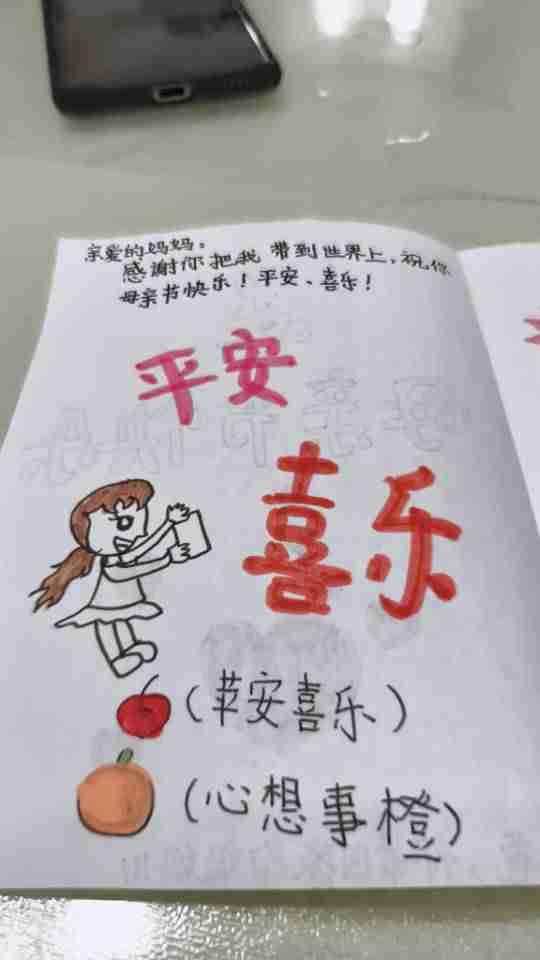 亲爱的妈妈：
感谢你把我带到世界上，祝你
母亲节快乐！平安、喜乐！
平安
喜乐
（苹安喜乐）
（心想事橙）